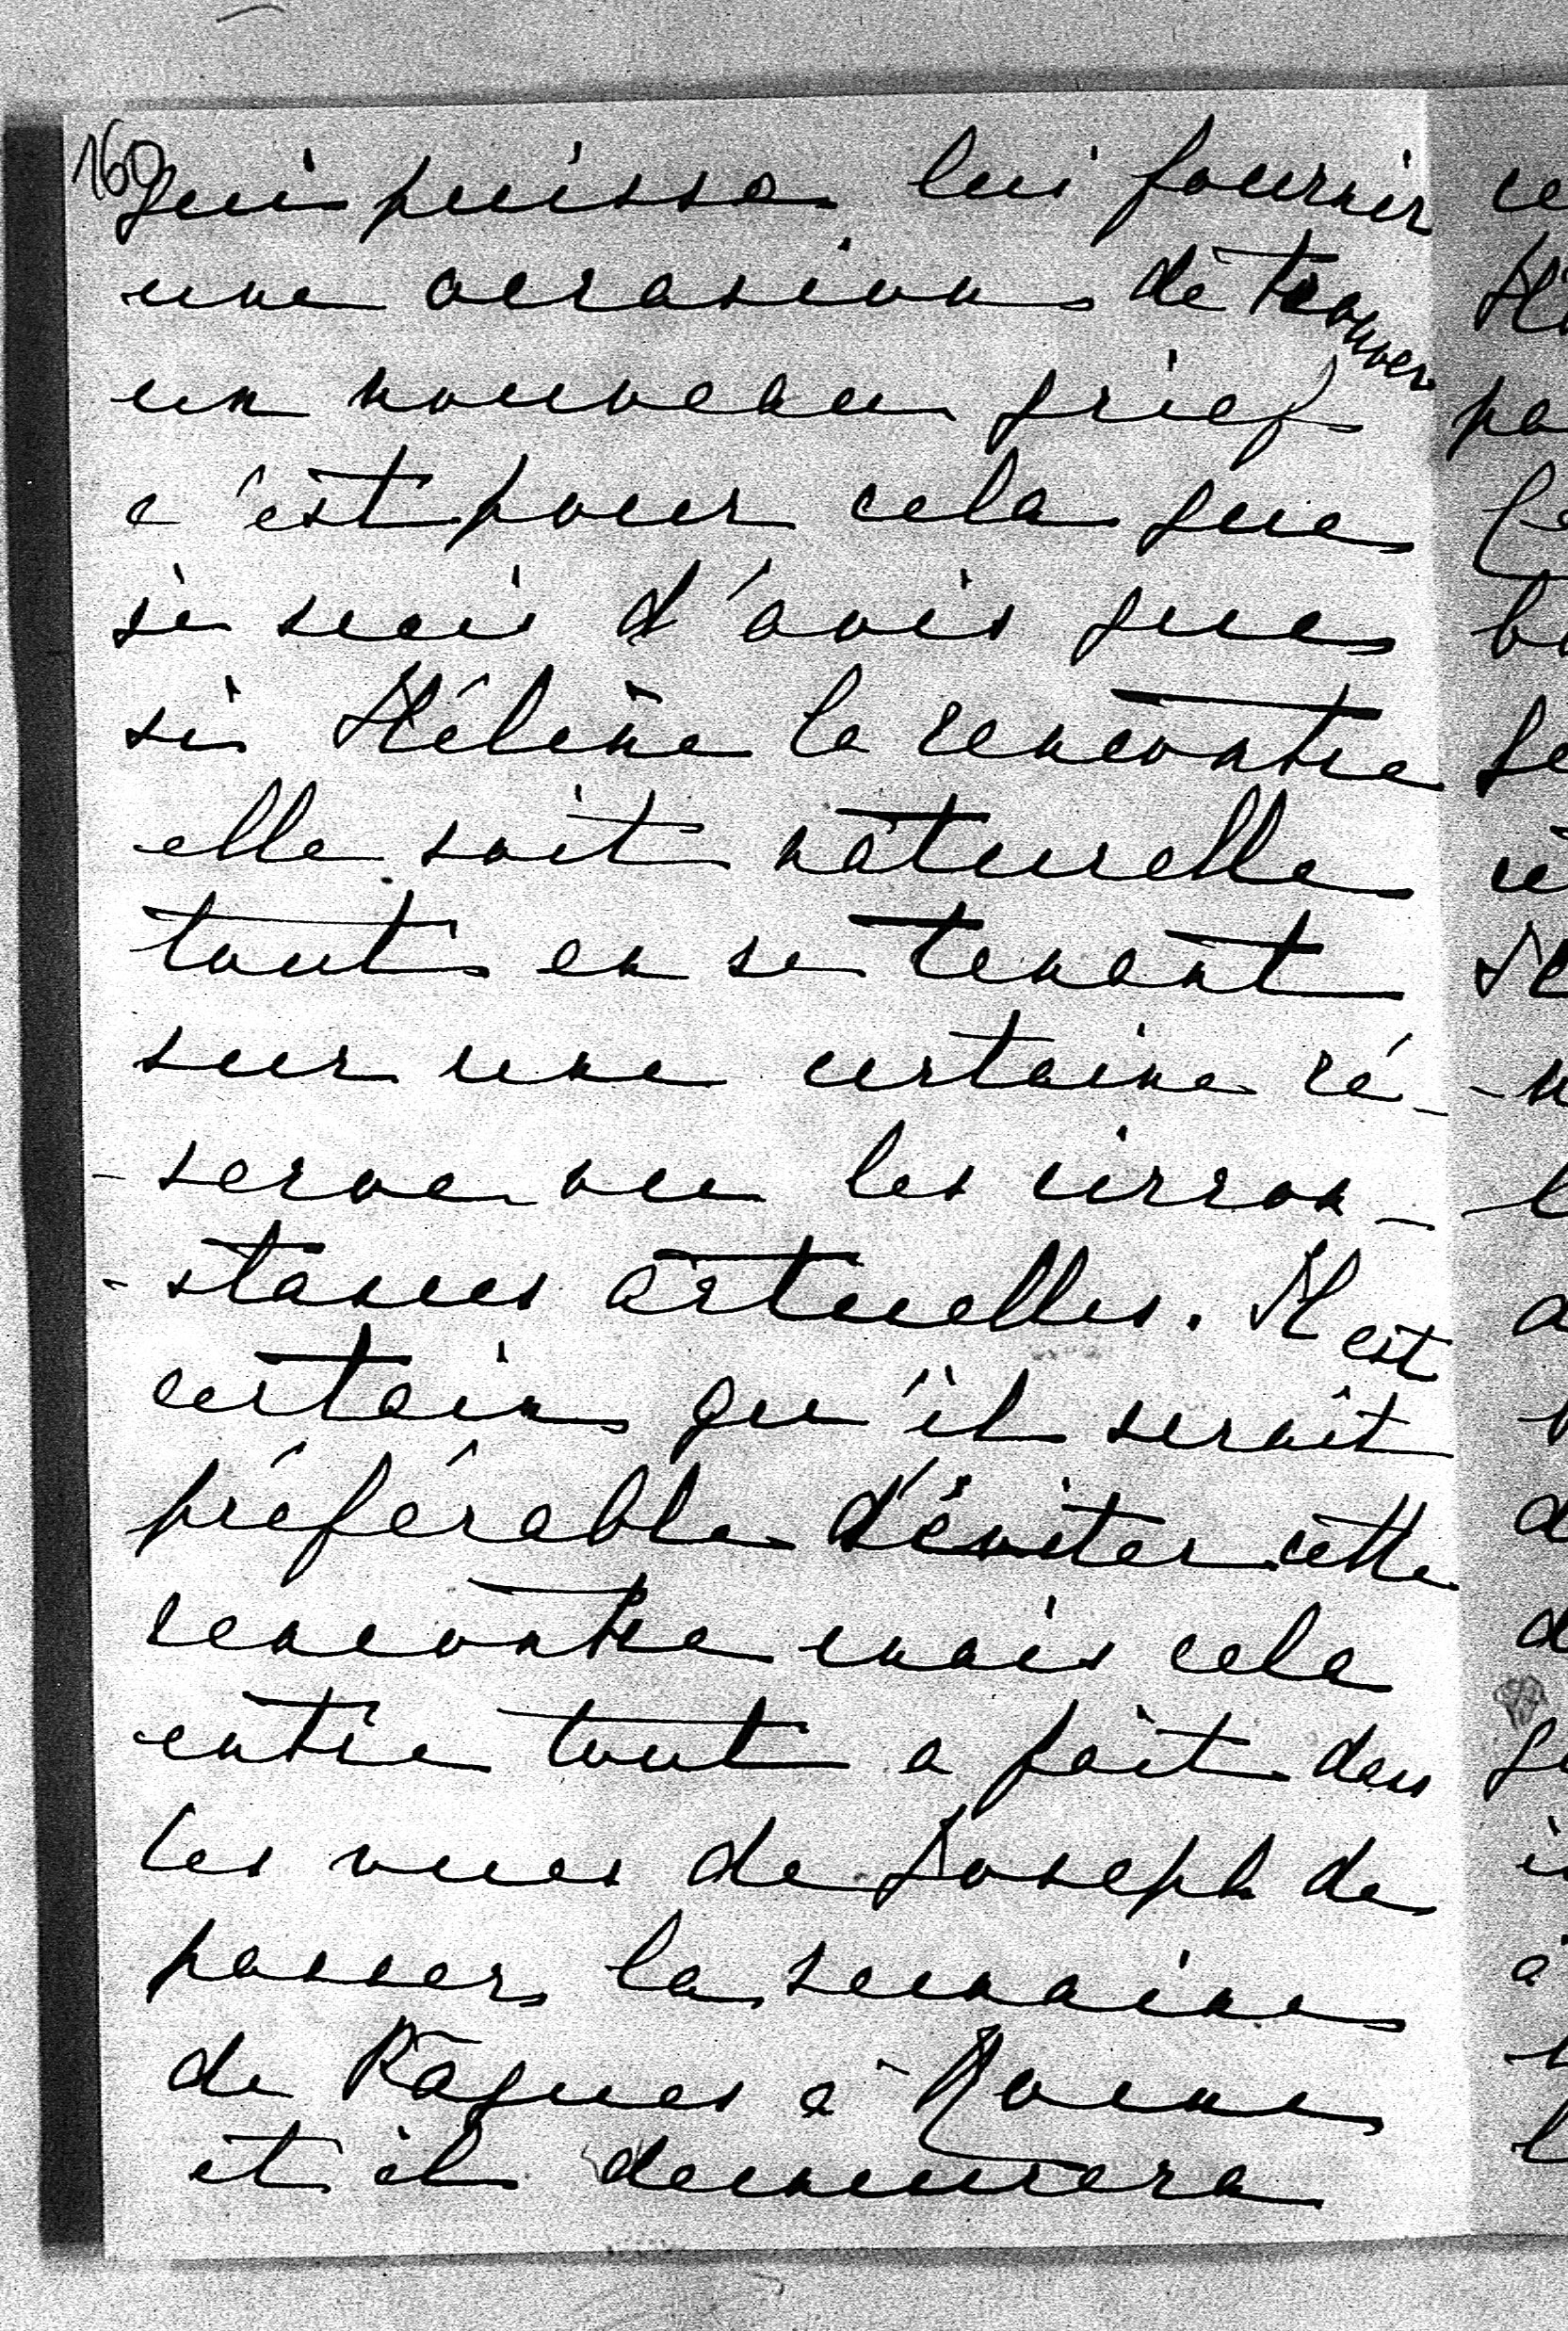 160
qui puisse lui fournir
une occasion de trouver
un nouveau grief
c'est pour cela que
je suis d'avis que
si Hélène le rencontre
elle soit naturelle
tout en se tenant
sur une certaine ré-
-serve vu les circon-
-stances actuelles. Il est
certain qu'il serait
préférable d'éviter cette
rencontre mais cela
entre tout a fait dans
les vues de Joseph de
passer la semaine
de Pâques à Rome
et il demeurera